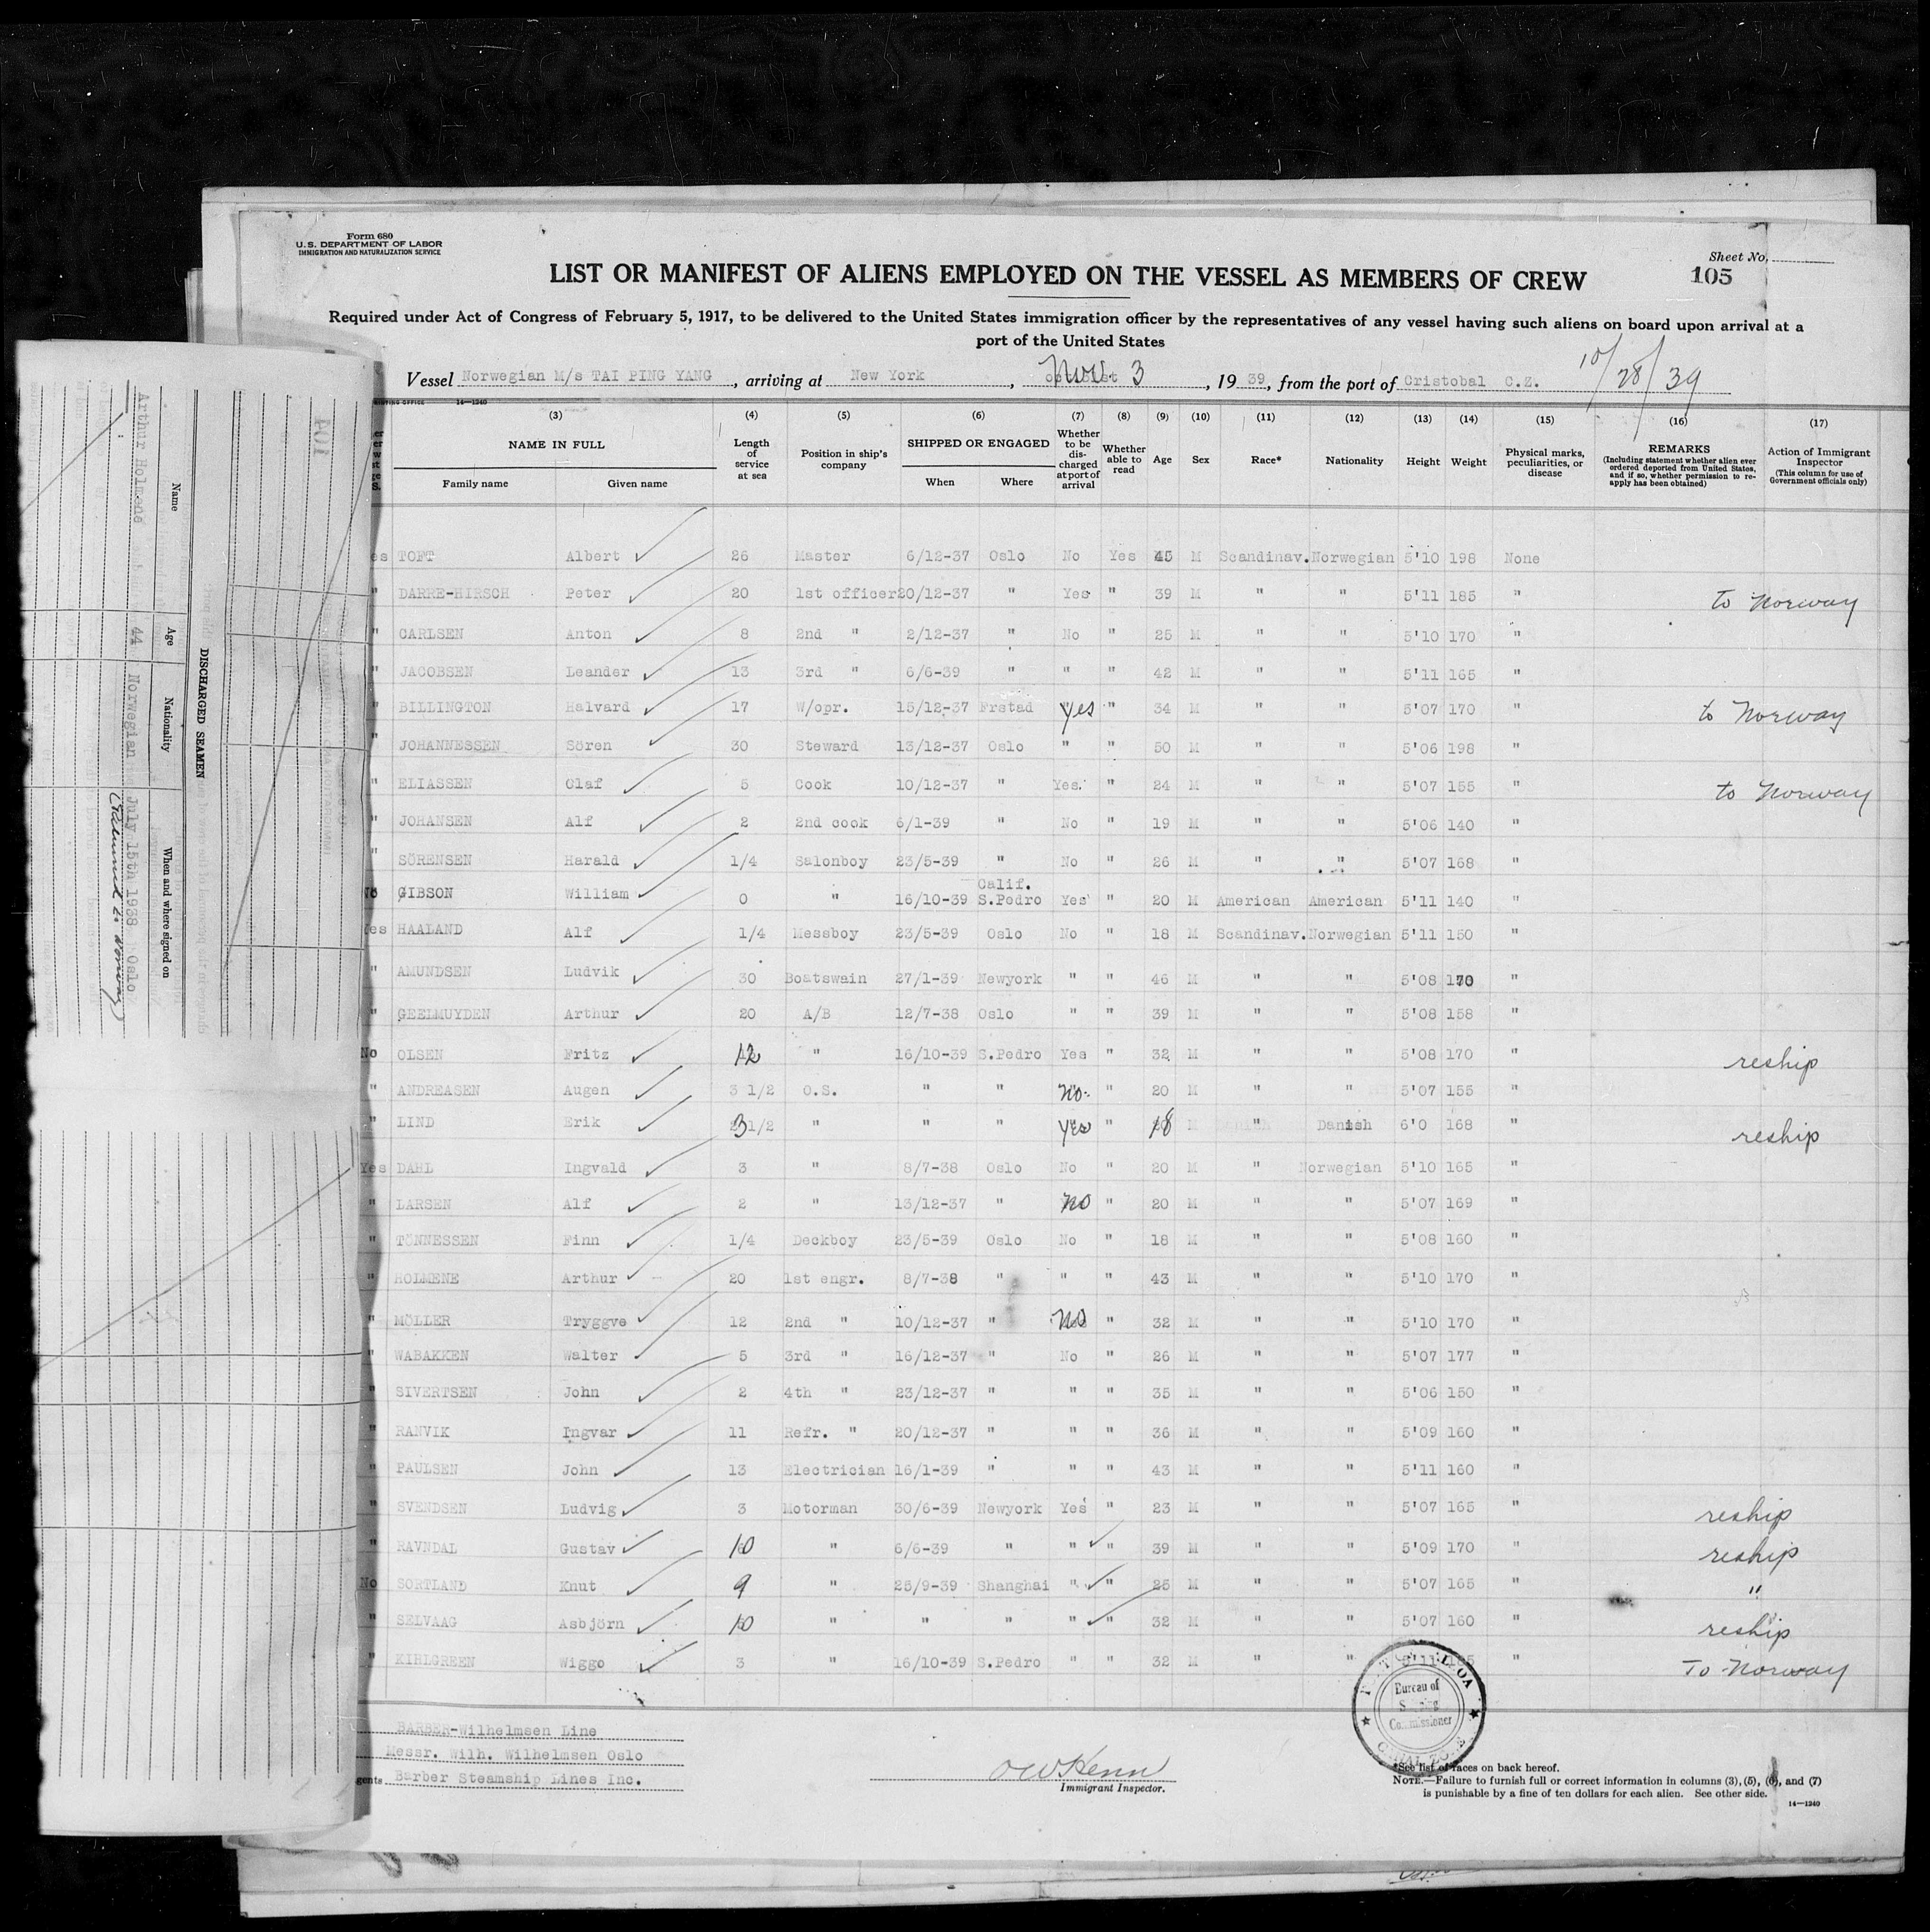 Form 680
U.S. DEPARTMENT OF LABOR
IMMIGRATION AND NATURALIZATION SERVICE
Sheet No.
105
LIST OR MANIFEST OF ALIENS EMPLOYED ON THE VESSEL AS MEMBERS OF CREW
Required under Act of Congress of February 5, 1917, to be delivered to the United States immigration officer by the representatives of any vessel having such aliens on board upon arrival at a
port of the United States
Vessel Norwegian M/s TAI PING YANG, arriving at New York, Nov. 3, 19 39, from the port of Cristobal C.Z. 10/28/39
14—1240
(3) (4) (5) (6) (7) (8) (9) (10) (11) (12) (13) (14) (15) (16) (17)
NAME IN FULL
Family name Given name
Length of service at sea
Position in ship's company
SHIPPED OR ENGAGED
When Where
Whether to be discharged at port of arrival
Whether able to read
Age Sex Race* Nationality Height Weight
Physical marks, peculiarities, or disease
REMARKS
(Including statement whether alien ever ordered deported from United States, and if so, whether permission to reapply has been obtained)
Action of Immigrant Inspector
(This column for use of Government officials only)
es TOFT Albert 26 Master 6/12-37 Oslo No Yes 45 M Scandinav. Norwegian 5'10 198 None
" DARRE-HIRSCH Peter 20 1st officer 20/12-37 " Yes " 39 M " " 5'11 185 " to Norway
" CARLSEN Anton 8 2nd " 2/12-37 " No " 25 M " " 5'10 170 "
" JACOBSEN Leander 13 3rd " 6/6-39 " " " 42 M " " 5'11 165 "
" BILLINGTON Halvard 17 W/opr. 15/12-37 Frstad Yes " 34 M " " 5'07 170 " to Norway
" JOHANNESSEN Sören 30 Steward 13/12-37 Oslo " " 50 M " " 5'06 198 "
" ELIASSEN Olaf 5 Cook 10/12-37 " Yes " 24 M " " 5'07 155 " to Norway
" JOHANSEN Alf 2 2nd cook 6/1-39 " No " 19 M " " 5'06 140 "
" SÖRENSEN Harald 1/4 Salonboy 23/5-39 " No " 26 M " " 5'07 168 "
No GIBSON William 0 " 16/10-39 Calif. S.Pedro Yes " 20 M American American 5'11 140 "
Yes HAALAND Alf 1/4 Messboy 23/5-39 Oslo No " 18 M Scandinav. Norwegian 5'11 150 "
" AMUNDSEN Ludvik 30 Boatswain 27/1-39 Newyork " " 46 M " " 5'08 170 "
" GEELMUYDEN Arthur 20 A/B 12/7-38 Oslo " " 39 M " " 5'08 158 "
No OLSEN Fritz 12 " 16/10-39 S.Pedro Yes " 32 M " " 5'08 170 " reship
" ANDREASEN Augen 3 1/2 O.S. " " No " 20 M " " 5'07 155 "
" LIND Erik 3 1/2 " " " Yes " 18 M Danish 6'0 168 " reship
Yes DAHL Ingvald 3 " 8/7-38 Oslo No " 20 M " Norwegian 5'10 165 "
" LARSEN Alf 2 " 13/12-37 " No " 20 M " " 5'07 169 "
" TÖNNESSEN Finn 1/4 Deckboy 23/5-39 Oslo No " 18 M " " 5'08 160 "
" HOLMENE Arthur 20 1st engr. 8/7-38 " " " 43 M " " 5'10 170 "
" MÖLLER Tryggve 12 2nd " 10/12-37 " No " 32 M " " 5'10 170 "
" WABAKKEN Walter 5 3rd " 16/12-37 " No " 26 M " " 5'07 177 "
" SIVERTSEN John 2 4th " 23/12-37 " " " 35 M " " 5'06 150 "
" RANVIK Ingvar 11 Refr. " 20/12-37 " " " 36 M " " 5'09 160 "
" PAULSEN John 13 Electrician 16/1-39 " " " 43 M " " 5'11 160 "
" SVENDSEN Ludvig 3 Motorman 30/6-39 Newyork Yes " 23 M " " 5'07 165 " reship
" RAVNDAL Gustav 10 " 6/6-39 " " " 39 M " " 5'09 170 " reship
No SORTLAND Knut 9 " 25/9-39 Shanghai " " 25 M " " 5'07 165 " "
" SELVAAG Asbjörn 10 " " " " " 32 M " " 5'07 160 " reship
" KIHLGREEN Wiggo 3 " 16/10-39 S.Pedro " " 32 M " " 5'11 " To Norway
BARBER-Wilhelmsen Line
Messr. Wilh. Wilhelmsen Oslo
gents Barber Steamship Lines Inc.
Immigrant Inspector.
Bureau of
Commissioner
*See list of races on back hereof.
NOTE.—Failure to furnish full or correct information in columns (3), (5), (6), and (7)
is punishable by a fine of ten dollars for each alien. See other side.
14—1240
104
DISCHARGED SEAMEN
Name Age Nationality When and where signed on
Arthur Holmene 44 Norwegian July 15th 1938 Oslo